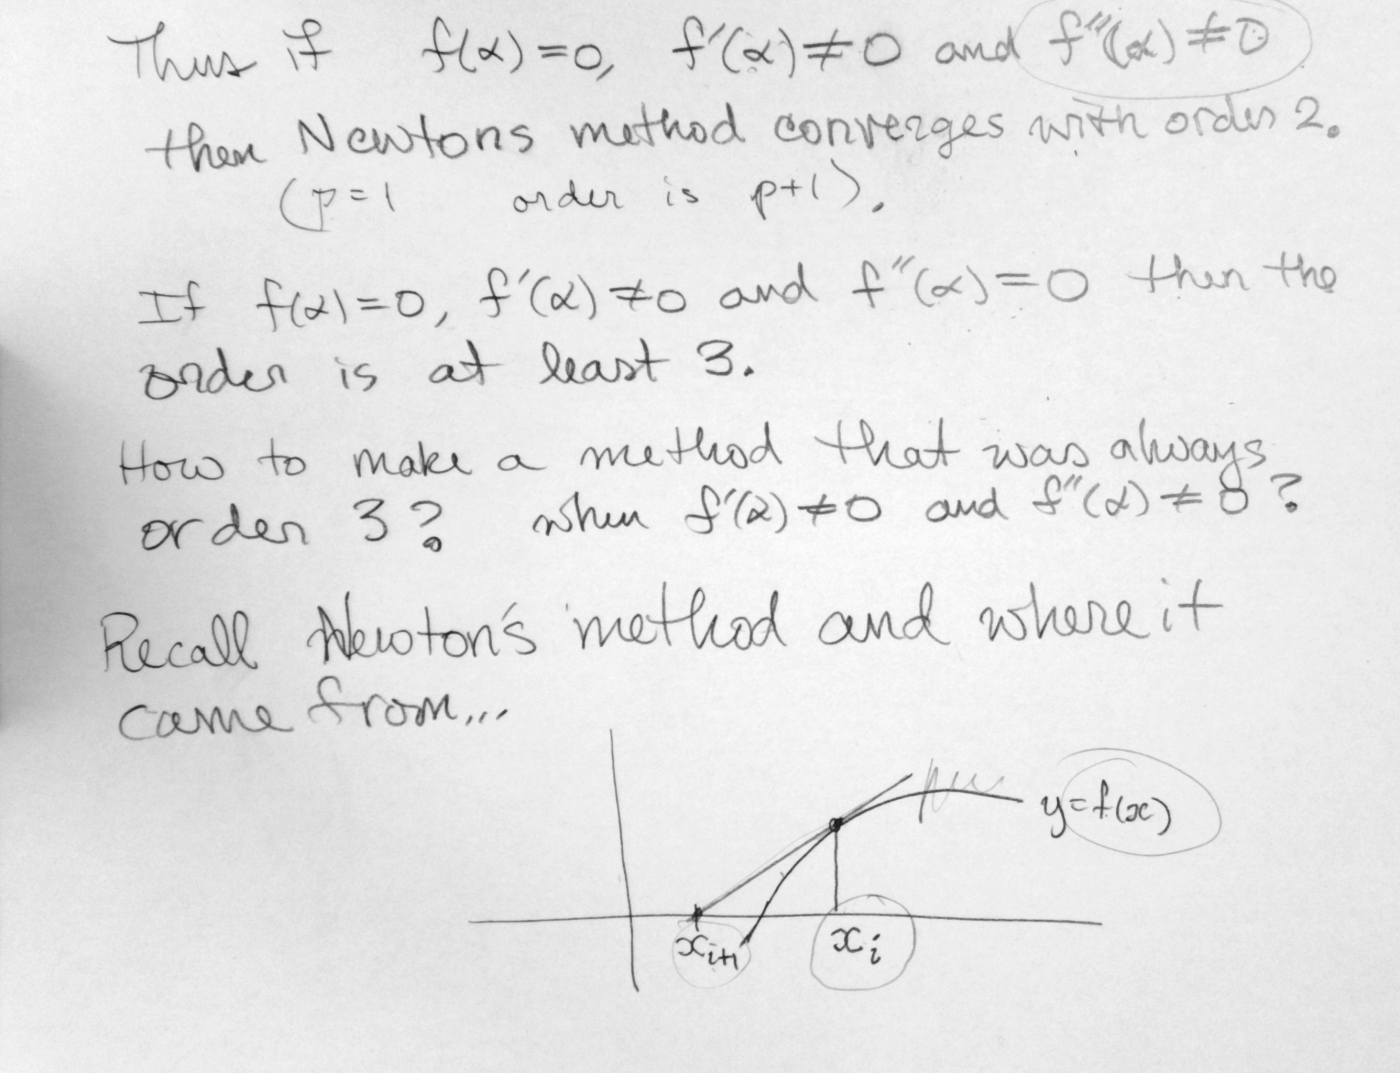 Thus if f(α)=0, f′(α)≠0 and f″(α)≠0
then Newtons method converges with order 2.
(p=1 order is p+1).
If f(α)=0, f′(α)≠0 and f″(α)=0 then the
order is at least 3.
How to make a method that was always
order 3? when f′(α)≠0 and f″(α)≠0?
Recall Newton's method and where it
came from...
y=f(x)
x_{i+1} x_i